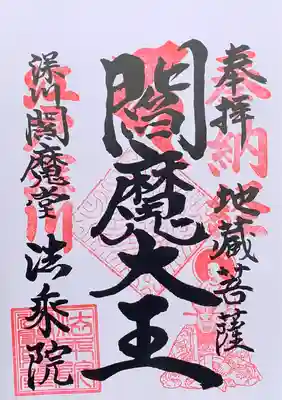 奉拝
地蔵菩薩
閻魔大王
深川閻魔堂
法乗院